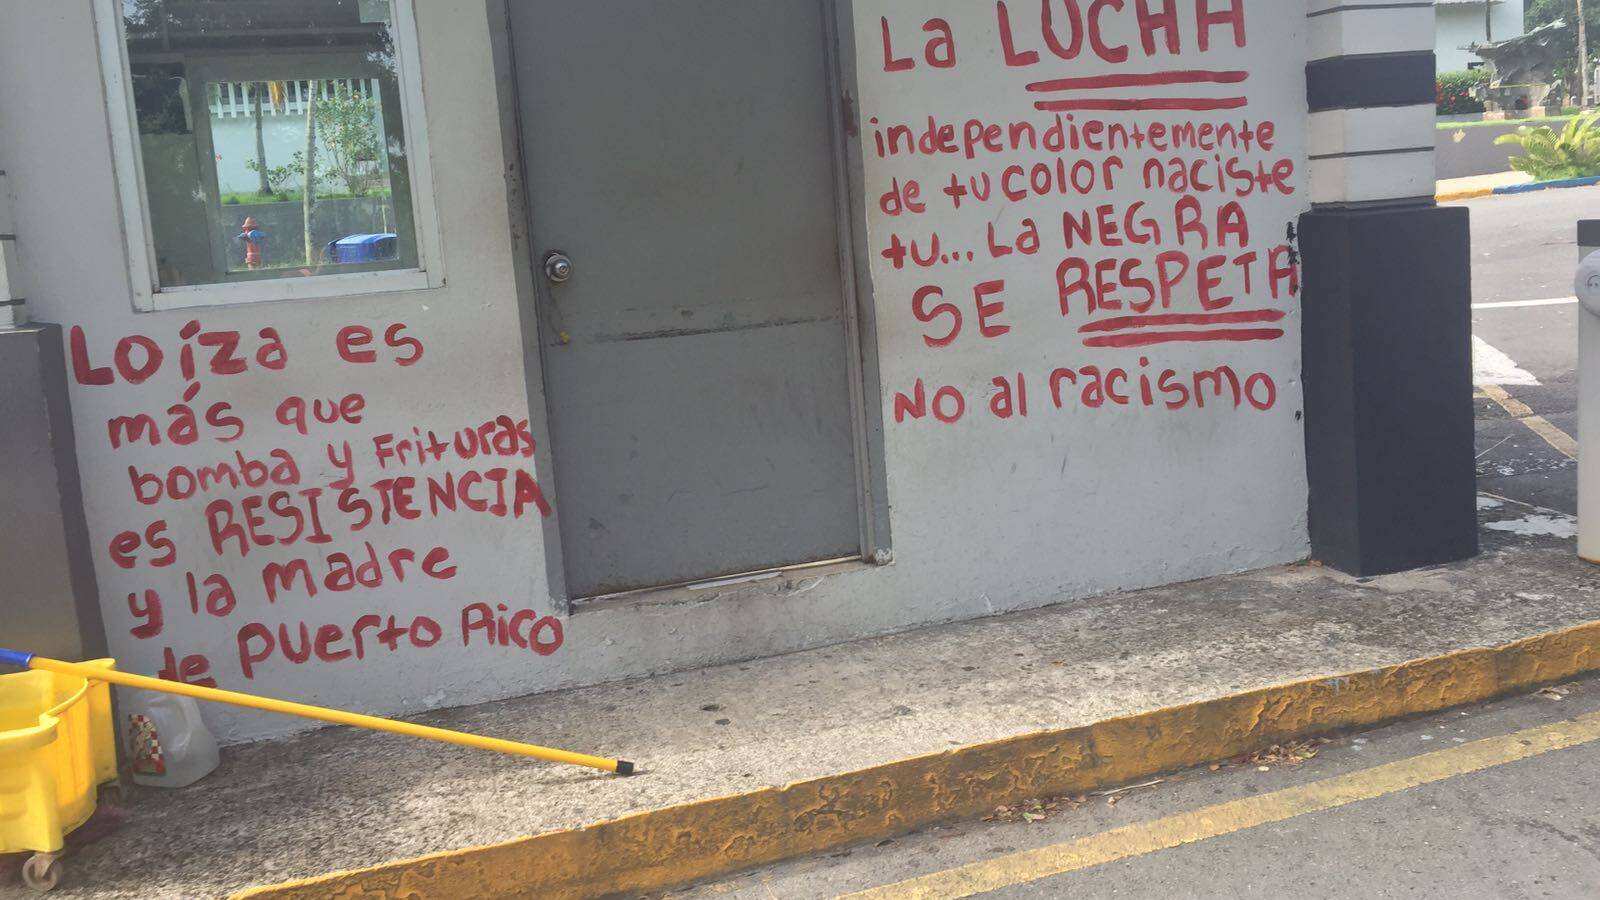 Loíza es
más que
bomba y frituras
es RESISTENCIA
y la madre
de Puerto Rico
La LUCHA
independientemente
de tu color naciste
tu... La NEGRA
SE RESPETA
No al racismo